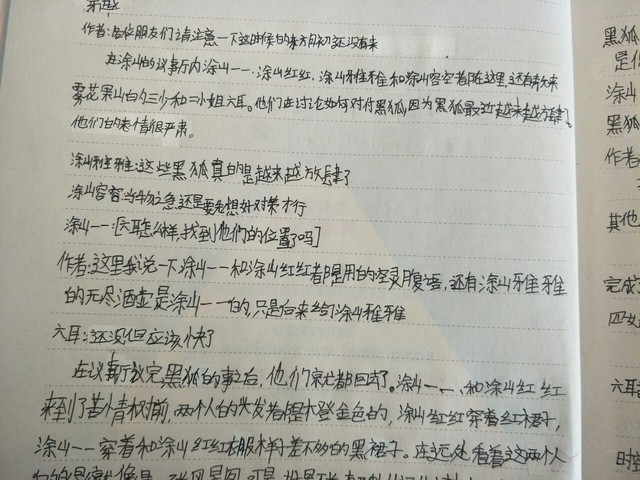 作者:各位朋友们请注意一下这时候的东方月初还没有来
在涂山的议事厅内涂山一一、涂山红红、涂山雅雅和涂山容容都在这里,还有来
雾花果山的三少和二小姐六耳。他们在讨论如何对付黑狐,因为黑狐最近越来越放肆了。
他们的表情很严肃。
涂山雅雅:这些黑狐真的是越来越放肆了
涂山容容:当务之急还是要先想好对策才行
涂山一一:[六耳怎么样,找到他们的位置了吗]
作者:这里我说一下,涂山一一和涂山红红都是用的空灵腹语,还有涂山雅雅
的无尽酒壶是涂山一一的,只是后来给了涂山雅雅
六耳:还没但应该快了
在议事厅议完黑狐的事之后,他们就都回去了。涂山一一、和涂山红红
来到了苦情树前,两个人的头发都是橙金色的,涂山红红穿着红裙子,
涂山一一穿着和涂山红红衣服样子差不多的黑裙子。在远处看着这两个人
黑狐
是
涂山
黑狐
作者
其他
完成
四
六耳
时